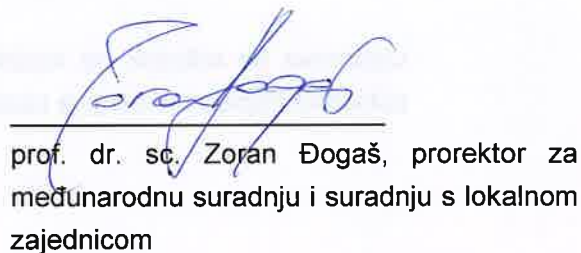 prof. dr. sc. Zoran Đogaš, prorektor za
međunarodnu suradnju i suradnju s lokalnom
zajednicom